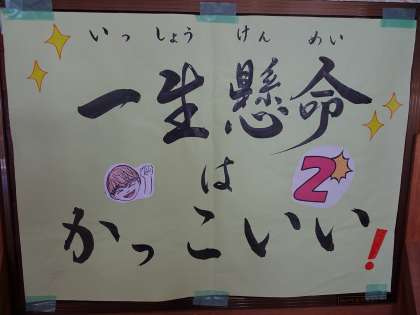 いっしょうけんめい
一生懸命
は
2
かっこいい!